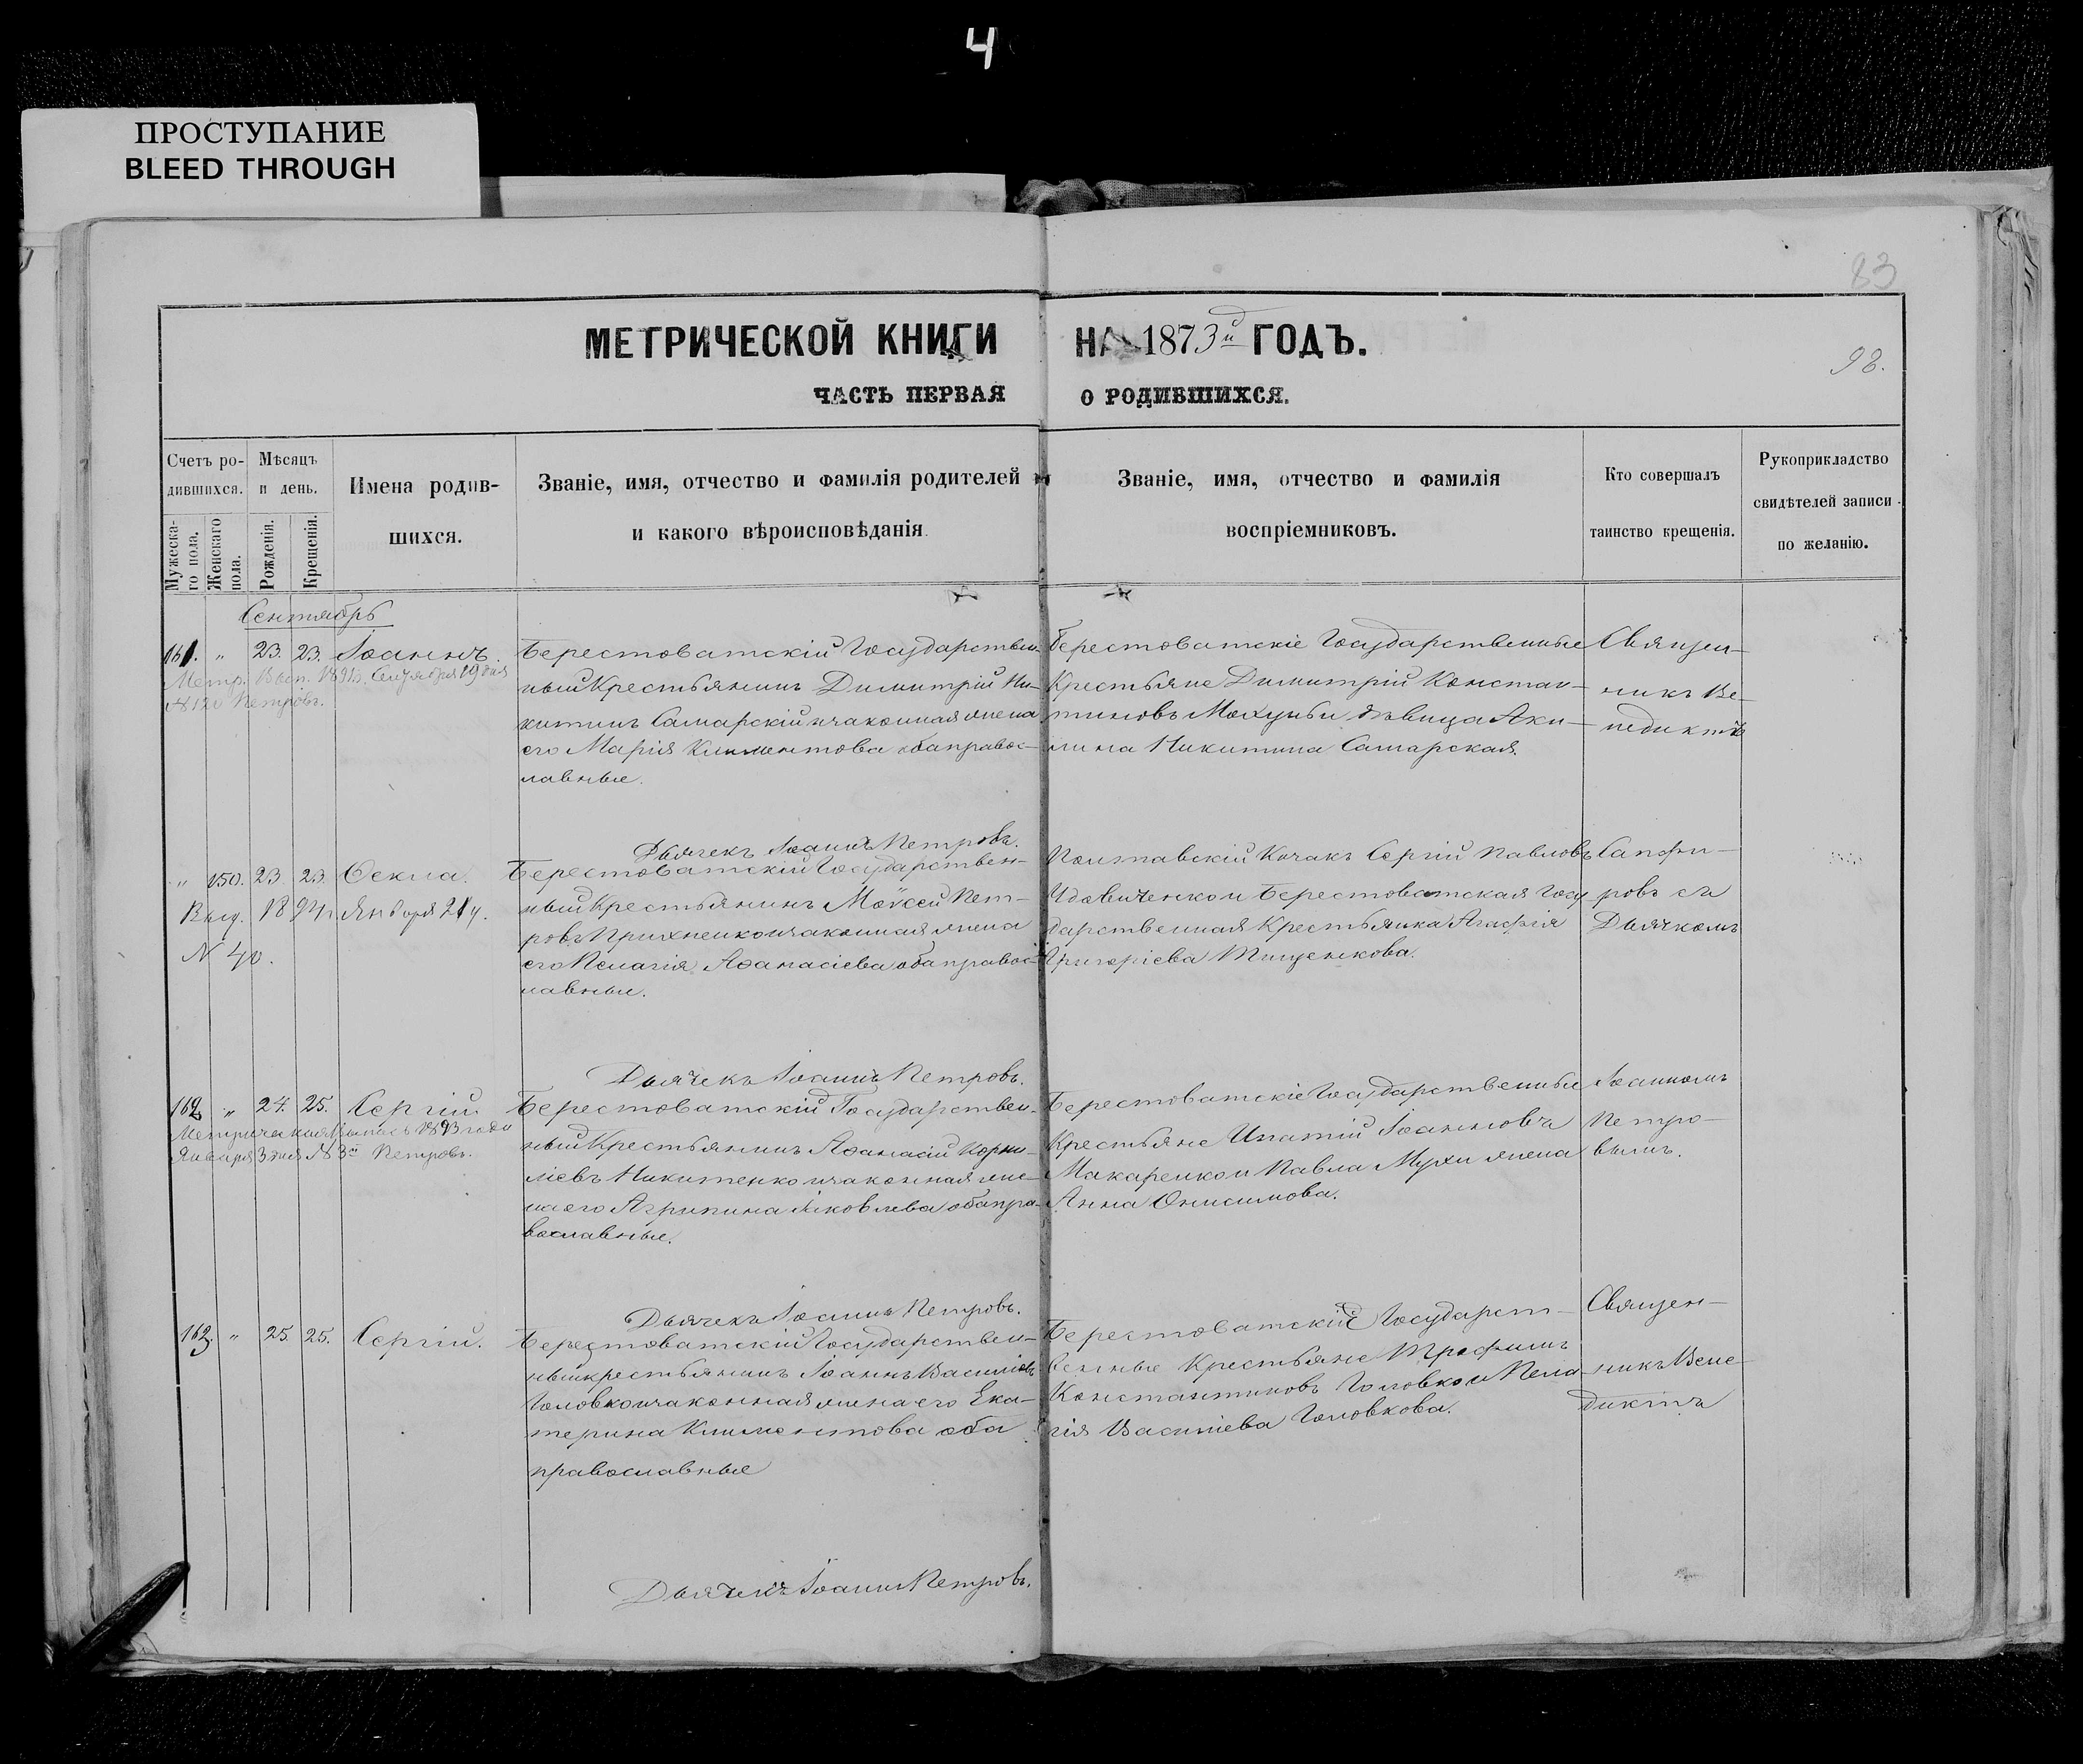 4
ПРОСТУПАНИЕ
BLEED THROUGH
83
МЕТРИЧЕСКОЙ КНИГИ НА 1873й ГОДЪ.
98.
ЧАСТЬ ПЕРВАЯ О РОДИВШИХСЯ.
Счетъ ро-
дившихся.
Мужеска-
го пола.
Женскаго
пола.
Мѣсяцъ
и день.
Рожденія.
Крещенія.
Имена родив-
шихся.
Званіе, имя, отчество и фамилія родителей
и какого вѣроисповѣданія
Званіе, имя, отчество и фамилія
воспріемниковъ.
Кто совершалъ
таинство крещенія.
Рукоприкладство
свидѣтелей записи
по желанію.
Сентябрь
161. " 23. 23. Іоаннъ.
Метр. Вып. Сентября 19 дня
№ 120 Петровъ.
Берестоватскій Государствен-
ный Крестьянинъ Димитрій Ни-
китинъ Самарскій и законная жена
его Марія Климентова оба правос-
лавные.
Дьячекъ Іоаннъ Петровъ.
Берестоватскіе Государственные
Крестьяне Димитрій Констан-
тиновъ Мохунь и дѣвица Аки-
лина Никитина Самарская.
Священ-
никъ Ве-
недиктъ
" 150. 23. 23. Ѳекла.
Выд. 1894 г. Января 21 ч.
N 40.
Берестоватскій Государствен-
ный Крестьянинъ Моѵсей Пет-
ровъ Прихненко и законная жена
его Пелагія Аѳанасіева оба правос-
лавные.
Дьячекъ Іоаннъ Петровъ.
Полтавскій Козакъ Сергій Павловъ
Удовиченко и Берестоватская Госу-
дарственная Крестьянка Агафія
Григоріева Тищенкова.
Сапфи-
ровъ съ
Дьячкомъ
162 " 24. 25. Сергій.
Метрическая Выпись 1893 года
Января 3 дня № 3й Петровъ.
Берестоватскій Государствен-
ный Крестьянинъ Аѳанасій Корни-
ліевъ Никитенко и законная же-
на его Агрипина Яковлева оба пра-
вославные.
Дьячекъ Іоаннъ Петровъ.
Берестоватскіе Государственные
Крестьяне Ипатій Іоанновъ
Макаренко и Павла Мухи жена
Анна Онисимова.
Іоанномъ
Петро-
вымъ.
163. " 25. 25. Сергій.
Берестоватскій Государствен-
ный крестьянинъ Іоаннъ Василіевъ
Головко и законная жена его Ека-
терина Климентова оба
православные
Дьячекъ Іоаннъ Петровъ.
Берестоватскіе Государст-
венные Крестьяне Трофимъ
Константиновъ Головко и Пела-
гія Василіева Головкова.
Священ-
никъ Вене-
диктъ